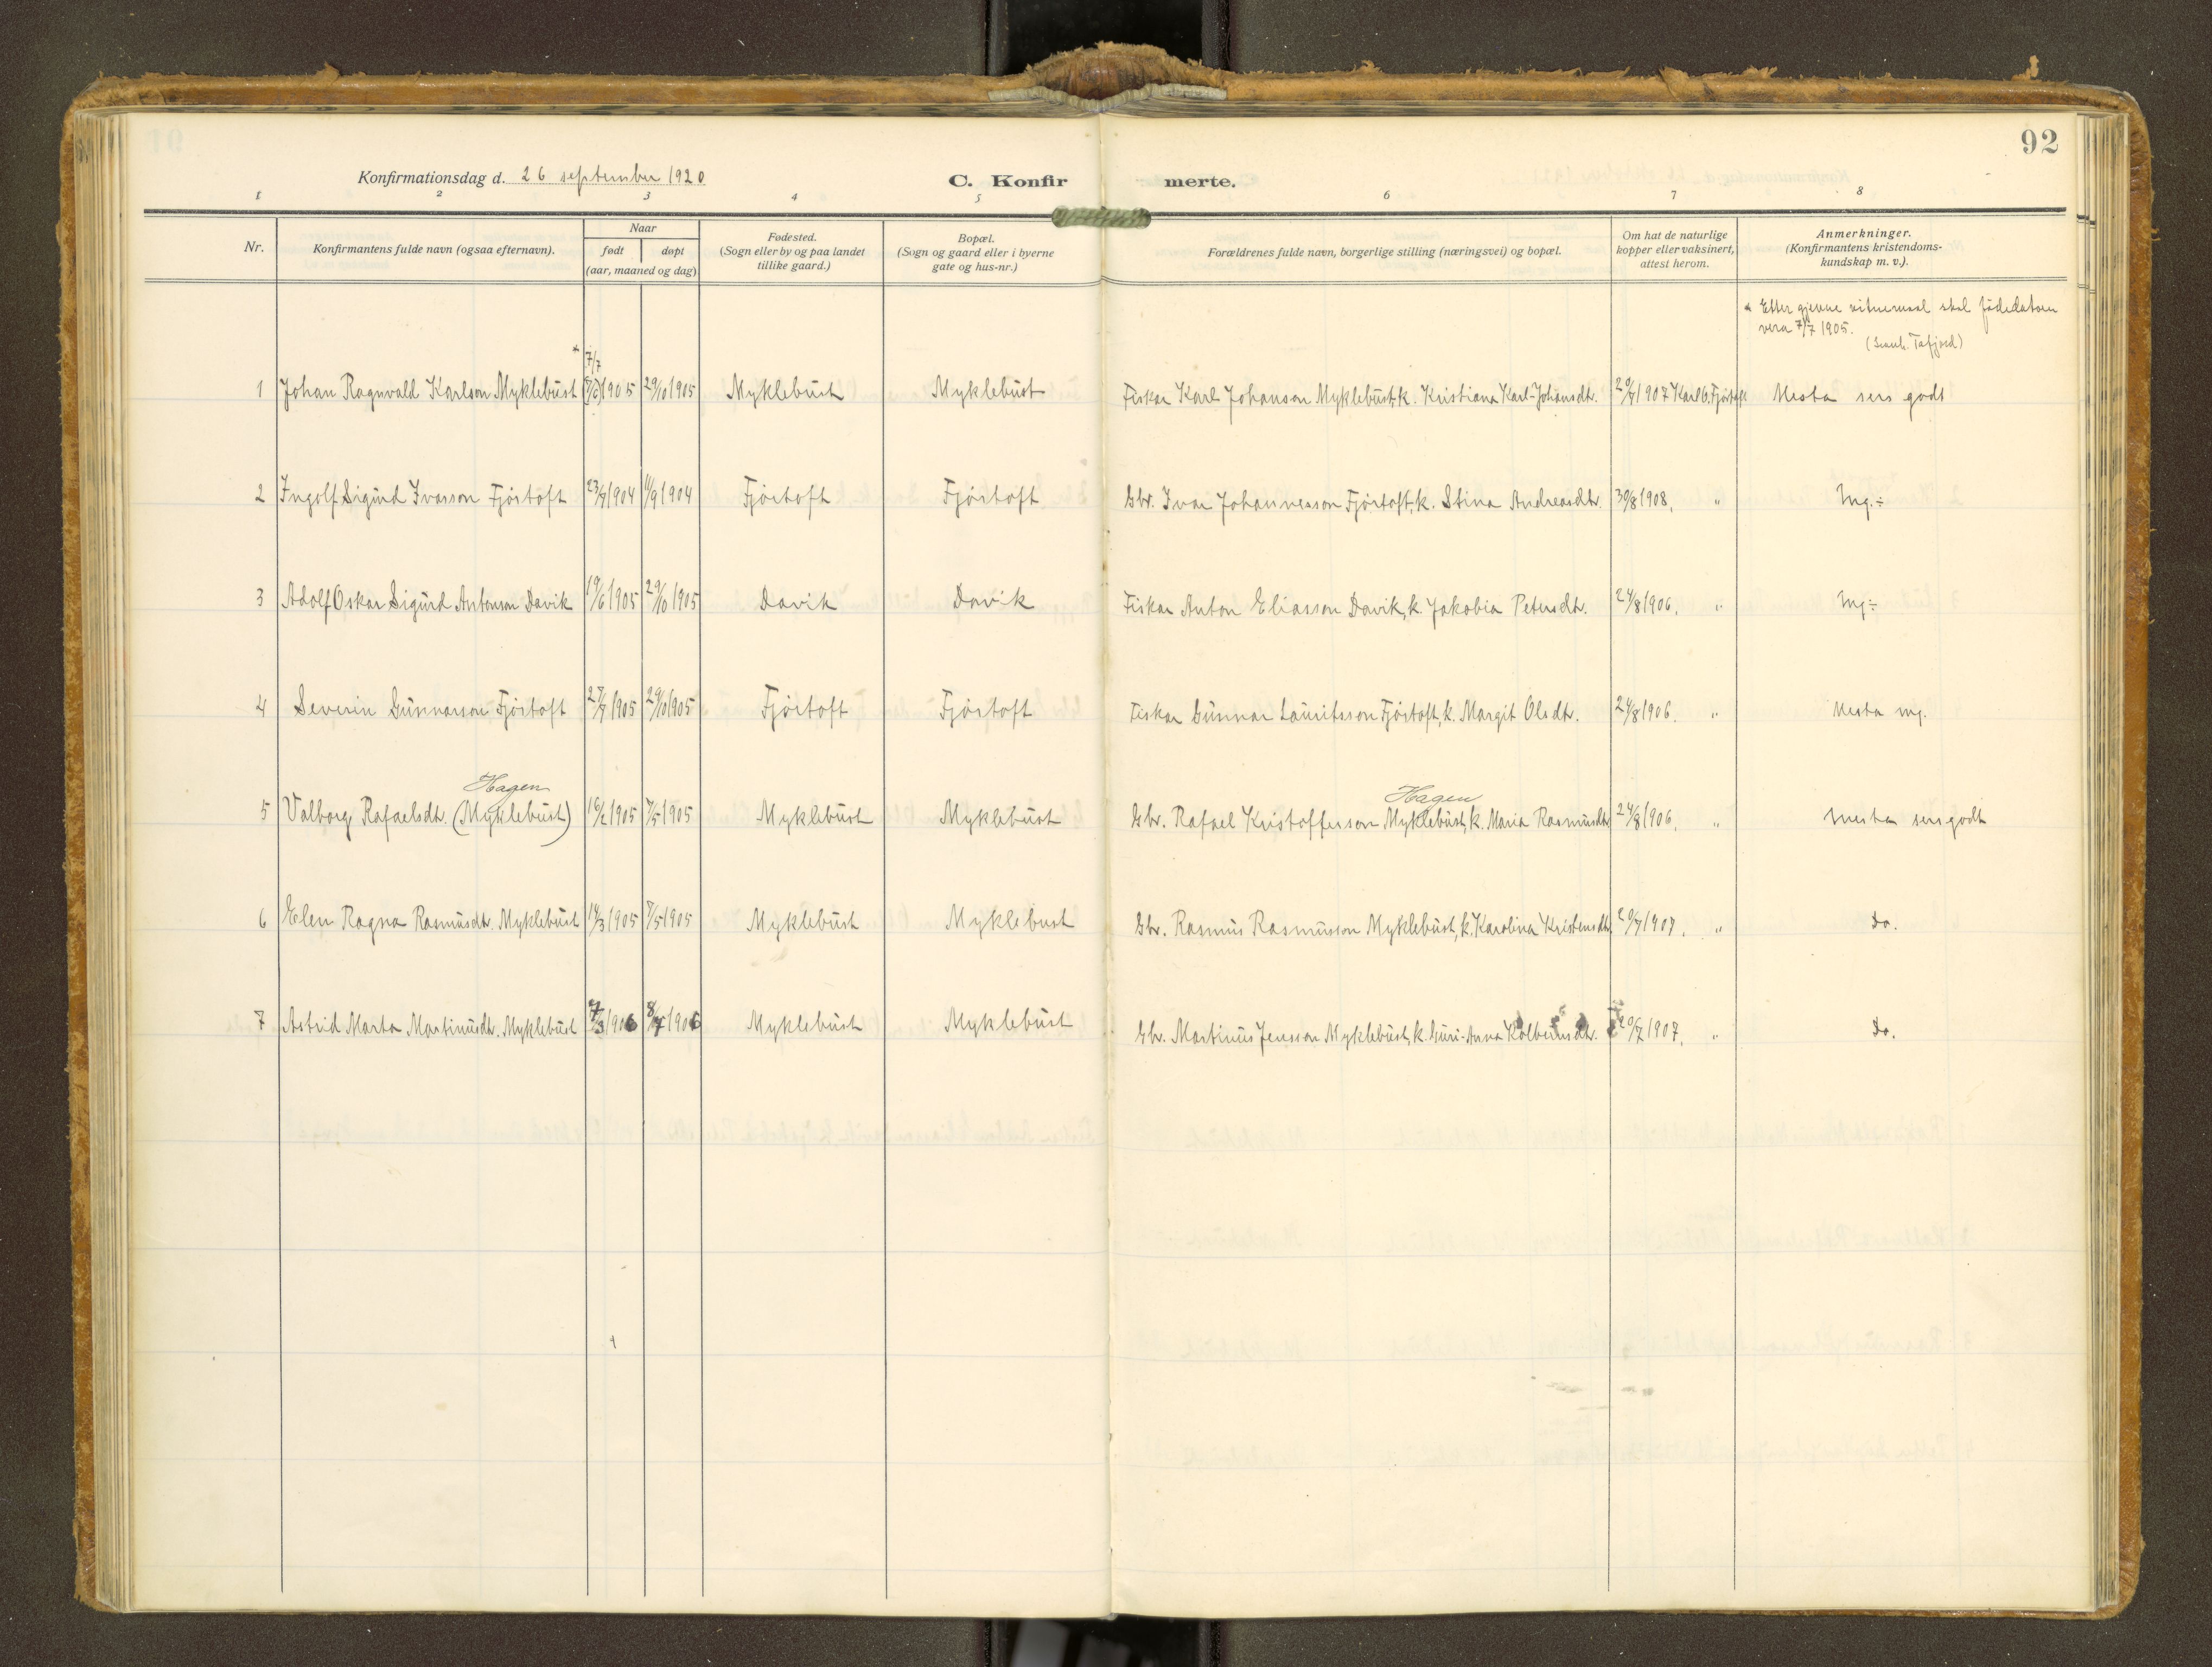 92
Konfirmationsdag d. 26 september 1920
C. Konfirmerte.
1 2 3 4 5 6 7 8
Nr.
Konfirmantens fulde navn (ogsaa efternavn).
Naar
født døpt
(aar, maaned og dag)
Fødested.
(Sogn eller by og paa landet
tillike gaard.)
Bopæl.
(Sogn og gaard eller i byerne
gate og hus-nr.)
Forældrenes fulde navn, borgerlige stilling (næringsvei) og bopæl.
Om hat de naturlige
kopper eller vaksinert,
attest herom.
Anmerkninger.
(Konfirmantens kristendoms-
kundskap m. v.).
* Etter gjevne vitnemaal skal fødedatoen
vera 7/7 1905.
Tafjord)
* 7/7
1 Johan Ragnvald Karlson Myklebust 1905 29/10 1905 Myklebust Myklebust Fiskar Karl Johanson Myklebust, k. Kristiana Karl-Johansdtr. 20/7 1907 Karl O. Fjørtoft Mesta sers godt
2 Ingolf Sigurd Ivarson Fjørtoft 23/7 1904 11/9 1904 Fjørtoft Fjørtoft Gbr. Ivar Johannesson Fjørtoft, k. Stina Andreasdtr. 30/8 1908. " Mg.÷
3 Adolf Oskar Sigurd Antonson Davik 19/6 1905 29/10 1905 Davik Davik Fiskar Anton Eliasson Davik, k. Jakobia Petersdtr. 24/8 1906. " Mg÷
4 Severin Gunnarson Fjørtoft 27/7 1905 29/10 1905 Fjørtoft Fjørtoft Fiskar Gunnar Lauritsson Fjørtoft, k. Margit Olsdtr. 24/8 1906. " Mesta mg.
Hagen Hagen
5 Valborg Rafaelsdtr. (Myklebust) 16/2 1905 7/5 1905 Myklebust Myklebust Gbr. Rafael Kristofferson Myklebust, k. Maria Rasmusdtr 24/8 1906. " Mesta sers godt
6 Elen Ragna Rasmusdtr. Myklebust 14/3 1905 7/5 1905 Myklebust Myklebust Gbr. Rasmus Rasmusson Myklebust, k. Karolina Kristensdtr. 20/7 1907. " Do.
7 Astrid Marta Martinusdtr. Myklebust 7/3 1906 8/7 1906 Myklebust Myklebust Gbr. Martinus Jensson Myklebust, k. Guri-Anna Kolbeinsdtr. 20/7 1907. " Do.